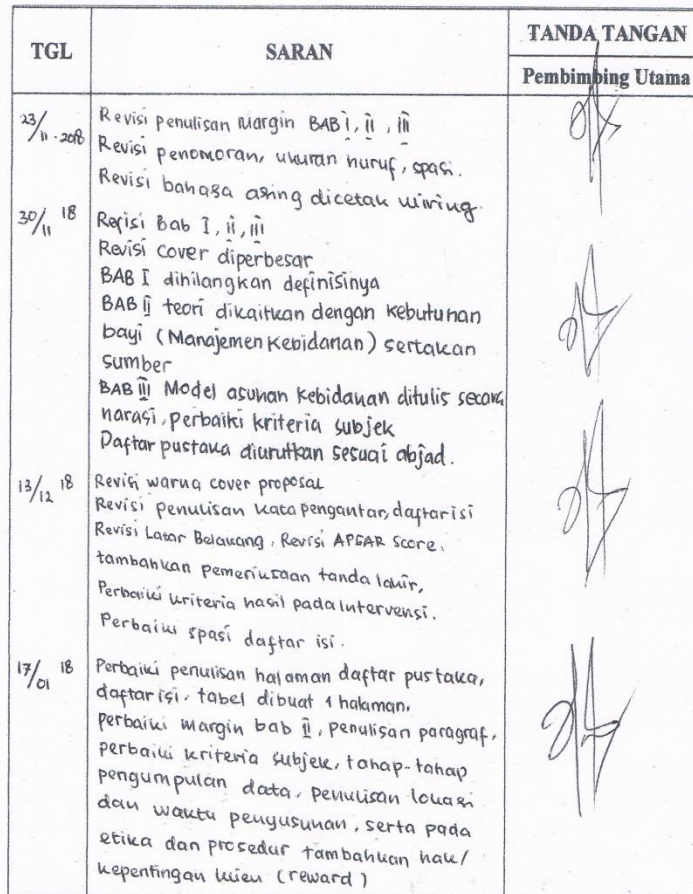 TGL
SARAN
TANDA TANGAN
Pembimbing Utama
23/11-2018
Revisi penulisan Margin BAB I, II, III
Revisi penomoran, ukuran huruf, spasi.
Revisi bahasa asing dicetak miring.
30/11 18
Revisi Bab I, II, III
Revisi cover diperbesar
BAB I dihilangkan definisinya
BAB II teori dikaitkan dengan kebutuhan
bayi (Manajemen Kebidanan) sertakan
sumber
BAB III Model asuhan kebidanan ditulis secara
narasi, perbaiki kriteria subjek
Daftar pustaka diurutkan sesuai abjad.
13/12 18
Revisi warna cover proposal
Revisi penulisan kata pengantar, daftar isi
Revisi Latar Belakang, Revisi APGAR Score,
tambahkan pemeriksaan tanda lahir,
Perbaiki kriteria hasil pada intervensi.
Perbaiki spasi daftar isi.
17/01 18
Perbaiki penulisan halaman daftar pustaka,
daftar isi, tabel dibuat 1 halaman,
perbaiki margin bab II, penulisan paragraf,
perbaiki kriteria subjek, tahap-tahap
pengumpulan data, penulisan lokasi
dan waktu penyusunan, serta pada
etika dan prosedur tambahkan hak/
kepentingan klien (reward)